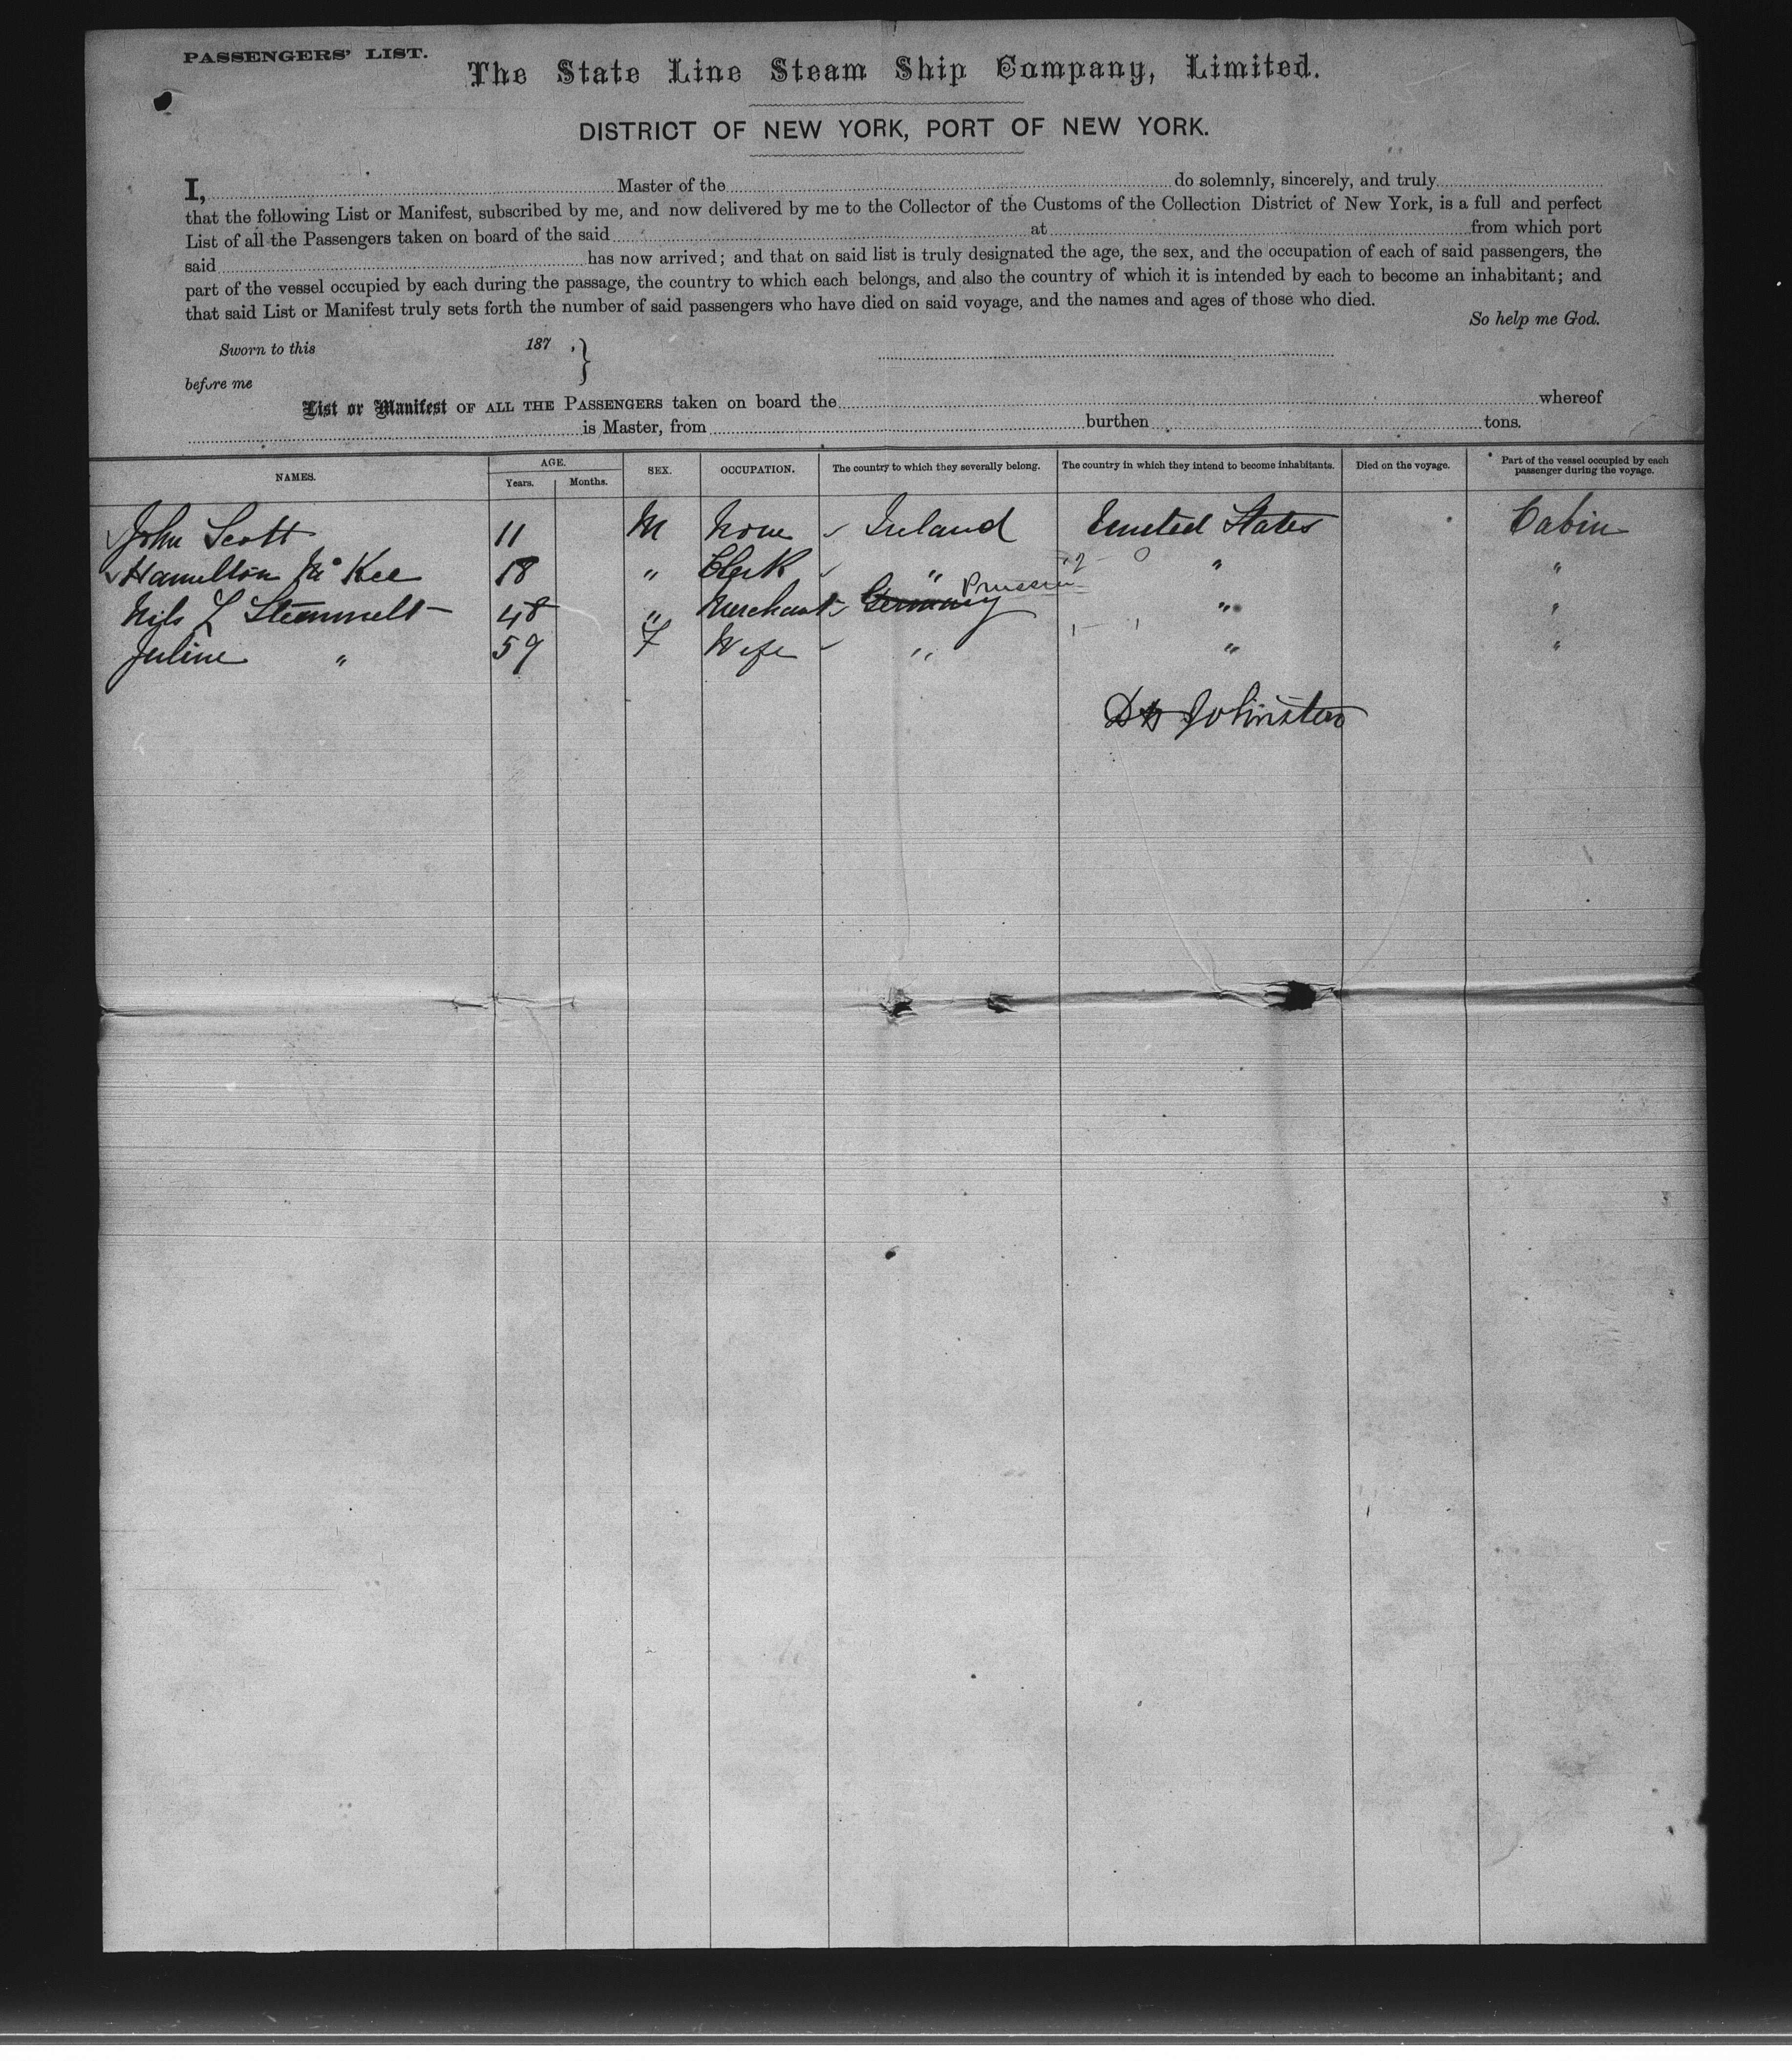 PASSENGERS' LIST.
The State Line Steam Ship Company, Limited.
DISTRICT OF NEW YORK, PORT OF NEW YORK.
I, Master of the do solemnly, sincerely, and truly
that the following List or Manifest, subscribed by me, and now delivered by me to the Collector of the Customs of the Collection District of New York, is a full and perfect
List of all the Passengers taken on board of the said at from which port
said has now arrived; and that on said list is truly designated the age, the sex, and the occupation of each of said passengers, the
part of the vessel occupied by each during the passage, the country to which each belongs, and also the country of which it is intended by each to become an inhabitant; and
that said List or Manifest truly sets forth the number of said passengers who have died on said voyage, and the names and ages of those who died.
So help me God.
Sworn to this 187 , }
before me
List or Manifest OF ALL THE PASSENGERS taken on board the whereof
is Master, from burthen tons.
NAMES. AGE. Years. Months. SEX. OCCUPATION. The country to which they severally belong. The country in which they intend to become inhabitants. Died on the voyage. Part of the vessel occupied by each passenger during the voyage.
John Scott 11 M None Ireland United States Cabin
Hamilton McKee 18 " Clerk " " "
Nils L 48 " Merchant Germany Prussia " "
Juline " 59 F Wife " " "
Johnston